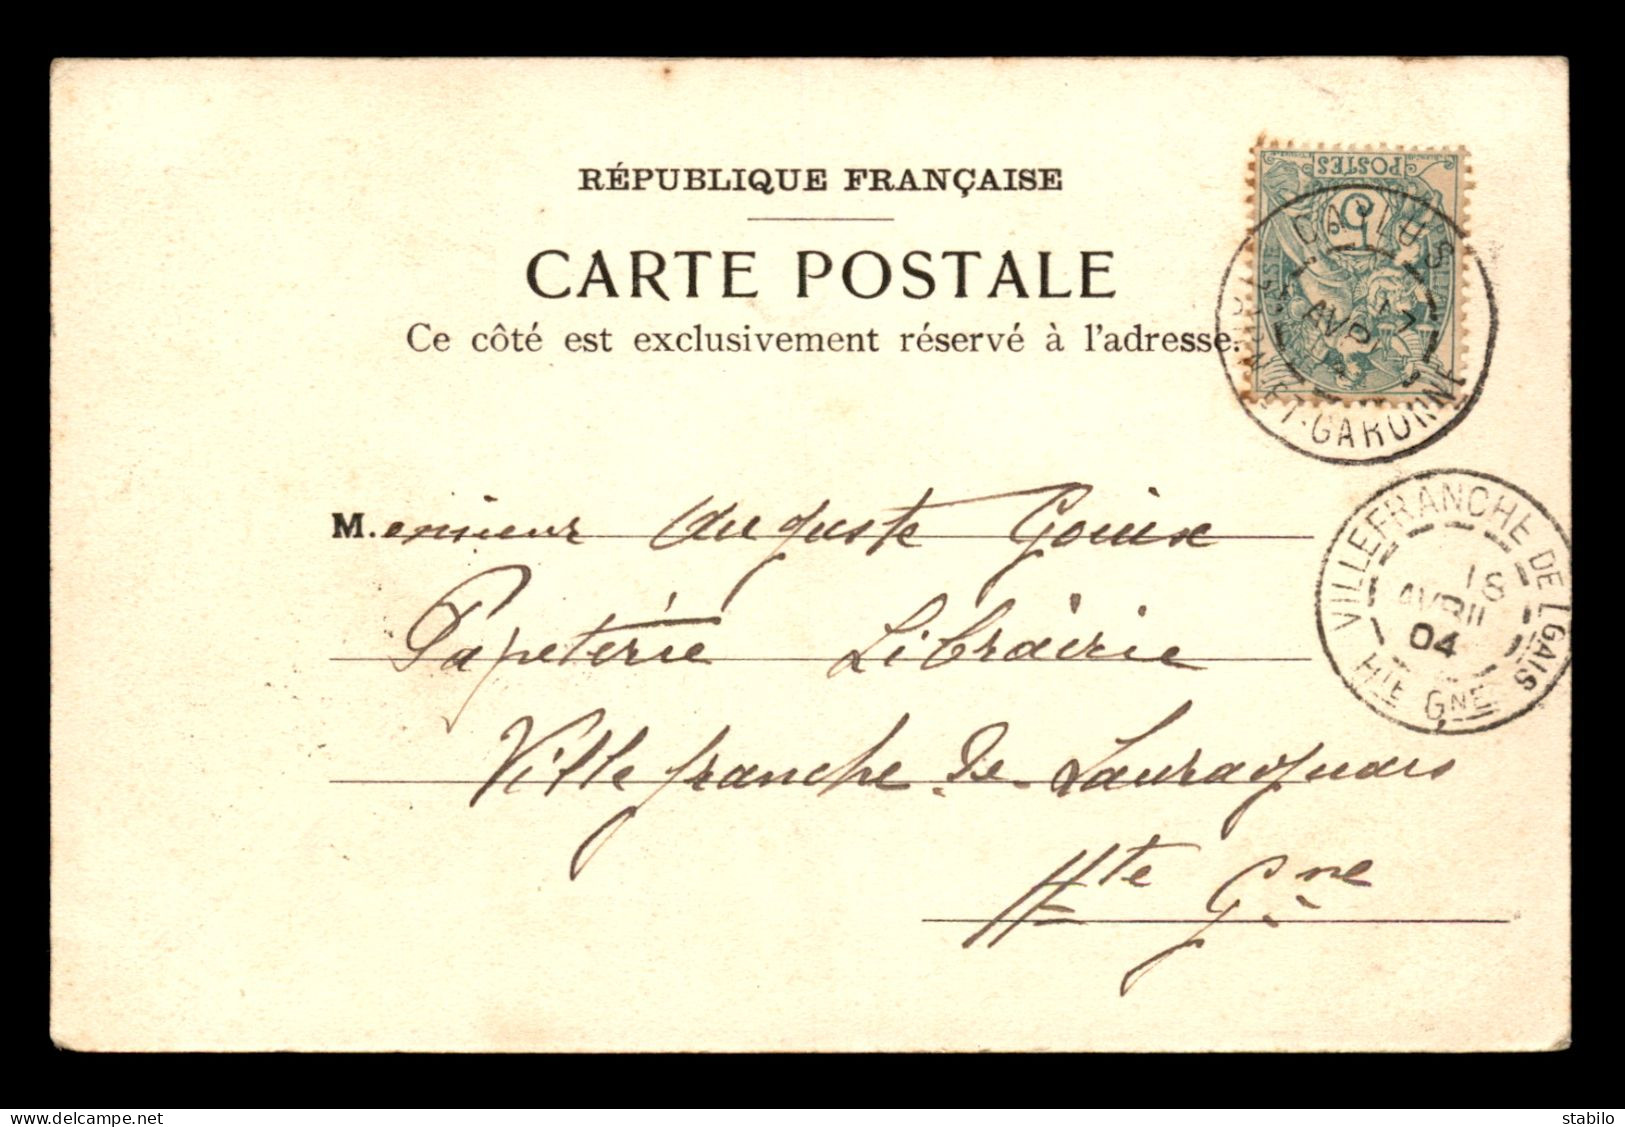 RÉPUBLIQUE FRANÇAISE
CARTE POSTALE
Ce côté est exclusivement réservé à l'adresse.
POSTES
5
CAYLUS
17
AVRIL
TARN-ET-GARONNE
M.onsieur Auguste Gouix
Papeterie Librairie
Villefranche de Lauraguais
Hte Gne
VILLEFRANCHE DE LGAIS
18
AVRIL
04
HTE GNE
delcampe.net
stabilo